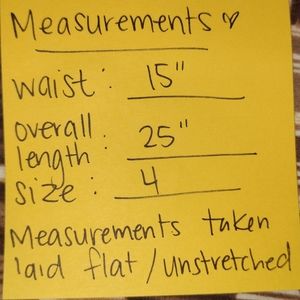 Measurements ♡
waist: 15"
overall
length: 25"
size: 4
Measurements taken
laid flat / unstretched